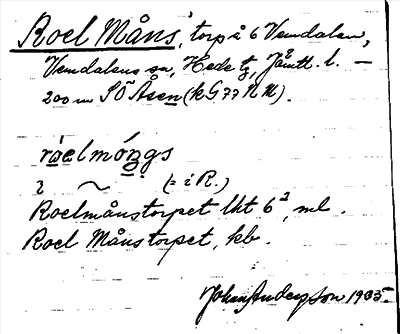 Roel Måns, torp å 6 Vemdalen,
Vemdalens sn, Hede tg, Jämtl. l. —
200 m SÖ Åsen (kG 77 N N).
róelmóŋgs
i ~ (= i R.)
Roelmånstorpet lht 6², ml.
Roel Månstorpet, kb.
Johan Anderson 1935.